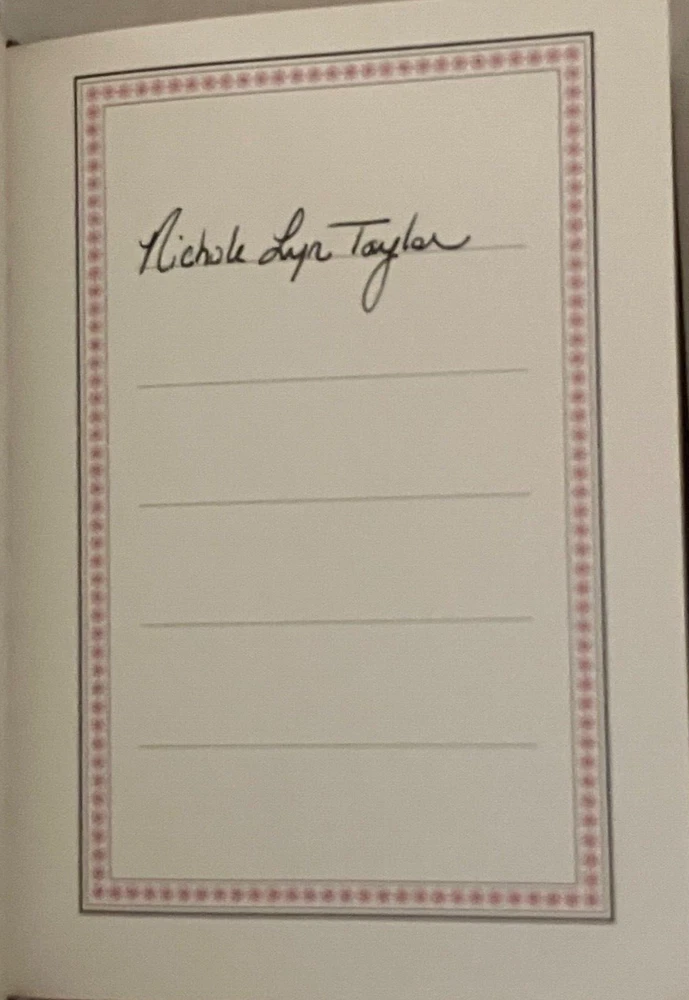 Nichole Lyn Taylor